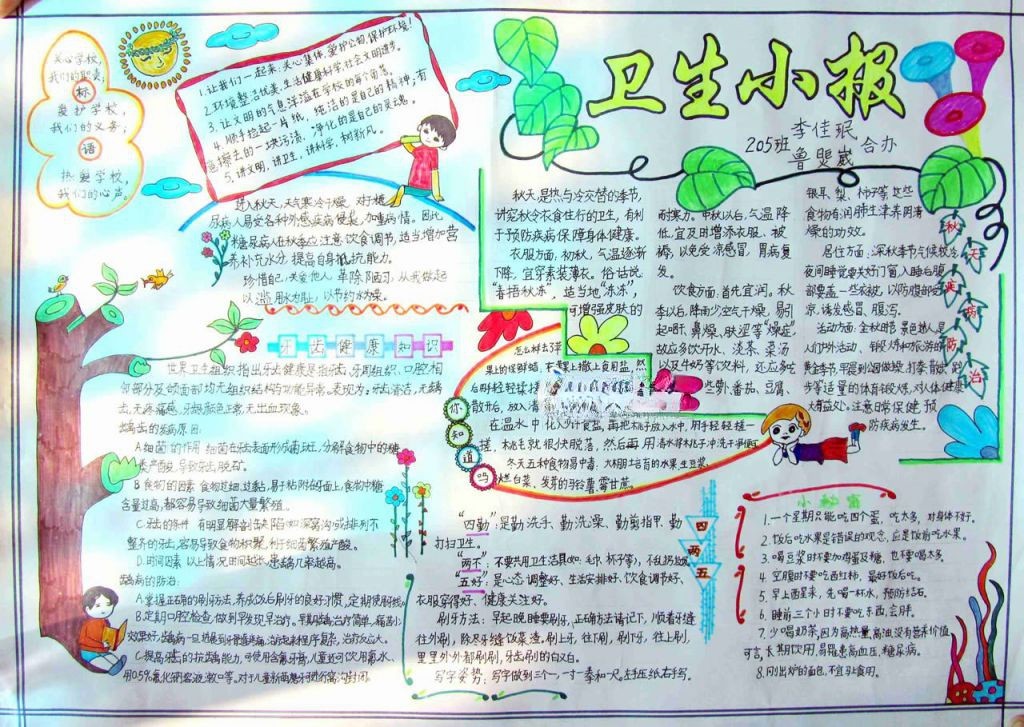 卫生小报
205班
李佳珉
合办
关心学校,
我们的职责;
标
爱护学校,
我们的义务;
语
热爱学校,
我们的心声。
1.让我们一起来,关心集体,爱护公物,保护环境!
2.环境整洁优美,生活健康科学,社会文明进步。
3.让文明的气息洋溢在学校的每个角落。
4.顺手捡起一片纸,纯洁的是自己的精神;有
意擦去的一块污渍,净化的是自己的灵魂。
5.讲文明,讲卫生,讲科学,树新风。
进入秋天,天气寒冷干燥,对于糖
尿病人易受各种外感疾病侵袭,加重病情。因此
糖尿病人在秋季应注意饮食调节,适当增加营
养补充水分,提高自身抵抗能力。
珍惜自己,关爱他人,革除陋习,从我做起
以滥用水为耻,以节约水为荣。
牙齿健康知识
世界卫生组织指出牙齿健康是指牙齿、牙周组织、口腔相
邻部分及颌面部均无组织结构与功能异常。表现为:牙齿清洁,无龋
齿,无疼痛感,牙龈颜色正常,无出血现象。
龋齿的发病原因:
A.细菌的作用 细菌在牙齿表面形成菌斑,分解食物中的糖
类产酸,导致牙齿脱矿。
B.食物的因素 食物过细,过黏,易于粘附在牙面上,食物中糖
含量过高,都容易导致细菌大量繁殖。
C.牙齿的条件 有明显解剖缺陷如深窝沟或排列不
整齐的牙齿,容易导致食物积聚,利于细菌繁殖产酸。
D.时间因素 以上情况时间越长,患龋几率越高。
龋病的防治:
A.掌握正确的刷牙方法,养成饭后刷牙的良好习惯,定期使用牙线
B.定期口腔检查,做到早发现早治疗。早期龋齿治疗简单,痛苦小
效果好,
C.提高牙齿的抗龋能力,可使用含氟牙膏,儿童还可饮用氟水、
秋天,是热与冷交替的季节,
讲究秋令衣食住行的卫生,有利
于预防疾病,保障身体健康。
衣服方面,初秋,气温逐渐
下降,宜穿素装薄衣。俗话说
“春捂秋冻”,适当地“冻冻”,
可增强皮肤的
耐寒力。中秋以后,气温降
低,宜及时增添衣服、被
褥,以免受凉感冒,胃病复
发。
饮食方面:首先宜润。秋
季以后,降雨少空气干燥,易引
起咽干、鼻燥、肤涩等“燥症”
故应多饮开水、淡茶、菜汤
以及牛奶等饮料,还应多吃
些萝卜、番茄、豆腐、
银耳、梨、柿子等,这些
食物有润肺生津养阴清
燥的功效。
居住方面:深秋季节气候较冷
夜间睡觉要关好门窗,入睡后腹
部要盖一些衣被,以防腹部受
凉,诱发感冒、腹泻。
活动方面:金秋时节,景色怡人,是
人们户外活动、锻炼和旅游的
黄金季节,早晨到公园做操、打拳、散
步等适量的体育锻炼,对人体健康
大有益处。注意日常保健,预
防疾病发生。
秋天疾病防治
你知道吗
怎么样去下苹
果上的保鲜蜡,在苹果上撒上食用盐,然
后用手轻轻揉搓
散开后,放入清
在温水中化入少许食盐,再把桃子放入水中,用手轻轻揉一
搓,桃毛就很快脱落,然后再用清水将桃子冲洗干净即可
冬天五种食物易中毒:大棚土培育的水果、生豆浆、
烂白菜、发芽的马铃薯、霉甘蔗。
四
两
五
“四勤”是勤洗手、勤洗澡、勤剪指甲、勤
打扫卫生。
“两不”:不要共用卫生洁具(如:毛巾、杯子等),不乱扔垃圾
“五好”:是心态调整好、生活安排好、饮食调节好、
衣服穿得好、健康关注好。
刷牙方法:早起晚睡要刷牙,正确方法请记下,顺着牙缝
往外刷,除尽牙缝饭菜渣,刷上牙,往下刷,刷下牙,往上刷,
里里外外都刷刷,牙齿刷的白又白。
写字姿势:写字做到三个一,一寸一拳和一尺。左手压纸右手写。
小秘密
1.一个星期只能吃四个蛋,吃太多,对身体不好。
2.饭后吃水果是错误的观念,应是饭前吃水果。
3.喝豆浆时不要加鸡蛋及糖,也不要喝太多。
4.空腹时不要吃西红柿,最好饭后吃。
5.早上醒来,先喝一杯水,预防结石。
6.睡前三个小时不要吃东西,会胖。
7.少喝奶茶,因为高热量,高油,没有营养价值
可言,长期饮用,易罹患高血压,糖尿病。
8.刚出炉的面包,不宜马上食用。